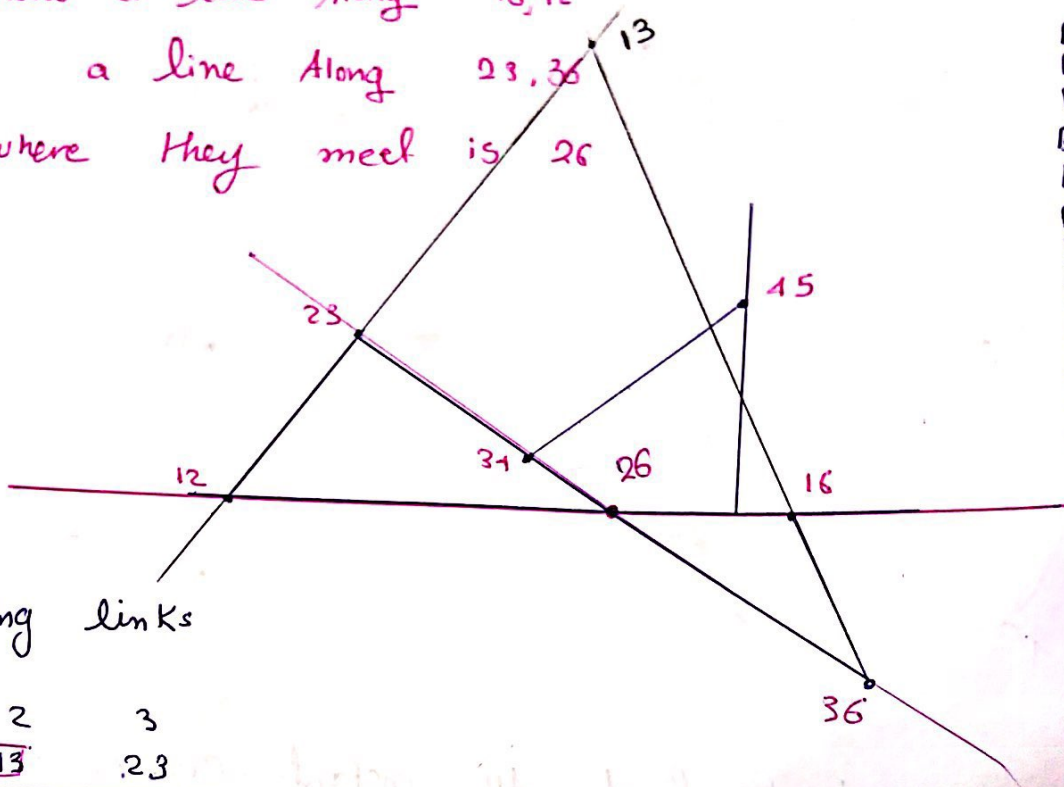 a line Along 23,36
where they meet is 26
13
23
45
34
26
12
16
links
36
2 3
13 23